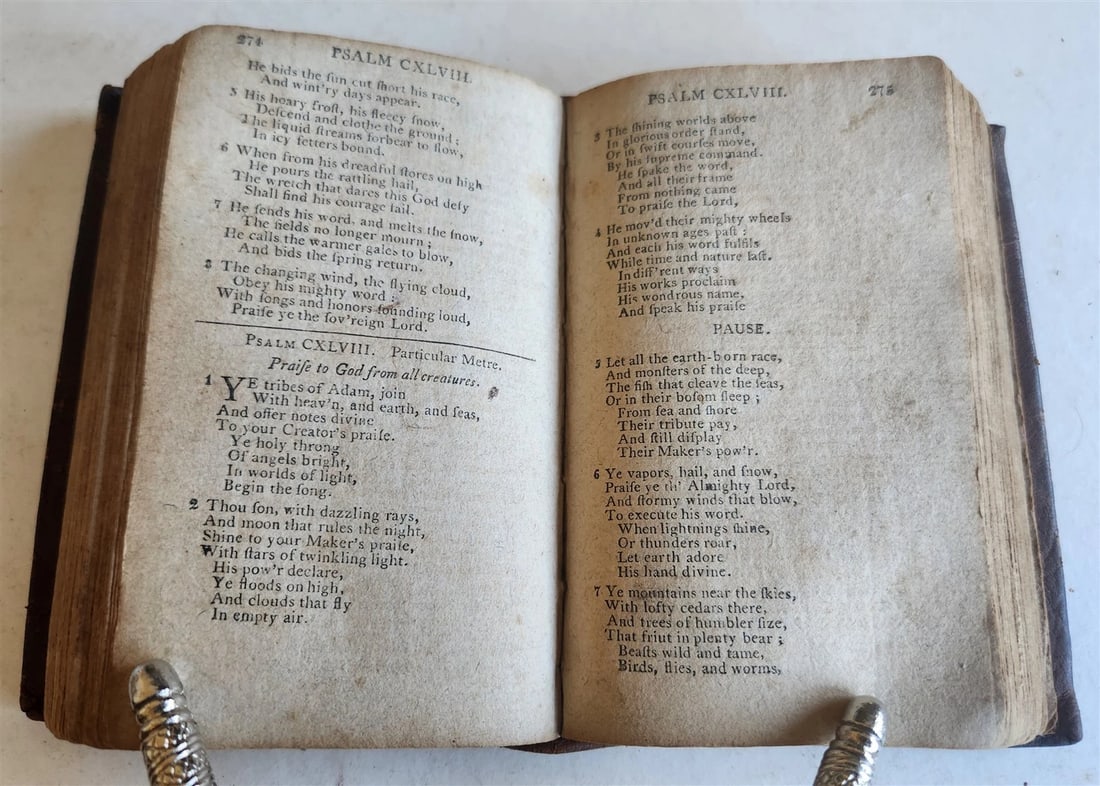 274
PSALM CXLVIII.
He bids the ſun cut ſhort his race,
And wint'ry days appear.
5 His hoary froſt, his fleecy ſnow,
Deſcend and clothe the ground ;
The liquid ſtreams forbear to flow,
In icy fetters bound.
6 When from his dreadful ſtores on high
He pours the rattling hail,
The wretch that dares this God defy
Shall find his courage fail.
7 He ſends his word, and melts the ſnow,
The fields no longer mourn ;
He calls the warmer gales to blow,
And bids the ſpring return.
8 The changing wind, the flying cloud,
Obey his mighty word :
With ſongs and honors ſounding loud,
Praiſe ye the ſov'reign Lord.
PSALM CXLVIII. Particular Metre.
Praiſe to God from all creatures.
1 YE tribes of Adam, join
With heav'n, and earth, and ſeas,
And offer notes divine
To your Creator's praiſe.
Ye holy throng
Of angels bright,
In worlds of light,
Begin the ſong.
2 Thou ſon, with dazzling rays,
And moon that rules the night,
Shine to your Maker's praiſe,
With ſtars of twinkling light.
His pow'r declare,
Ye floods on high,
And clouds that fly
In empty air.
PSALM CXLVIII.
275
3 The ſhining worlds above
In glorious order ſtand,
Or in ſwift courſes move,
By his ſupreme command.
He ſpake the word,
And all their frame
From nothing came
To praiſe the Lord,
4 He mov'd their mighty wheels
In unknown ages paſt :
And each his word fulfils
While time and nature laſt.
In diff'rent ways
His works proclaim
His wondrous name,
And ſpeak his praiſe
PAUSE.
5 Let all the earth-born race,
And monſters of the deep,
The fiſh that cleave the ſeas,
Or in their boſom ſleep ;
From ſea and ſhore
Their tribute pay,
And ſtill diſplay
Their Maker's pow'r.
6 Ye vapors, hail, and ſnow,
Praiſe ye th' Almighty Lord,
And ſtormy winds that blow,
To execute his word.
When lightnings ſhine,
Or thunders roar,
Let earth adore
His hand divine.
7 Ye mountains near the ſkies,
With lofty cedars there,
And trees of humbler ſize,
That friut in plenty bear ;
Beaſts wild and tame,
Birds, flies, and worms,